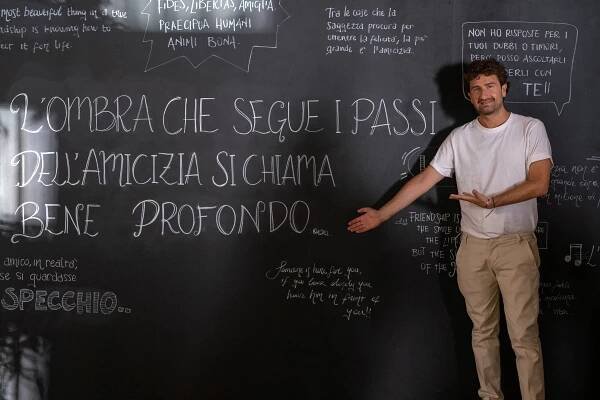 most beautiful thing in a true
friendship is knowing how to
for life
FIDES, LIBERTAS, AMICITIA
PRAECIPUA HUMANI
ANIMI BONA.
Tra le cose che la
saggezza procura per
ottenere la felicità, la più
grande è l'amicizia.
NON HO RISPOSTE PER I
TUOI DUBBI O TIMORI,
PERÒ POSSO ASCOLTARLI
CON
TE!!
L'OMBRA CHE SEGUE I PASSI
DELL'AMICIZIA SI CHIAMA
BENE PROFONDO...
FRIENDSHIP IS
THE
THE
BUT THE
OF THE
amico, in realtà,
se si guardasse
SPECCHIO...
is here for you,
if you look closely you
have him in front of
you!!